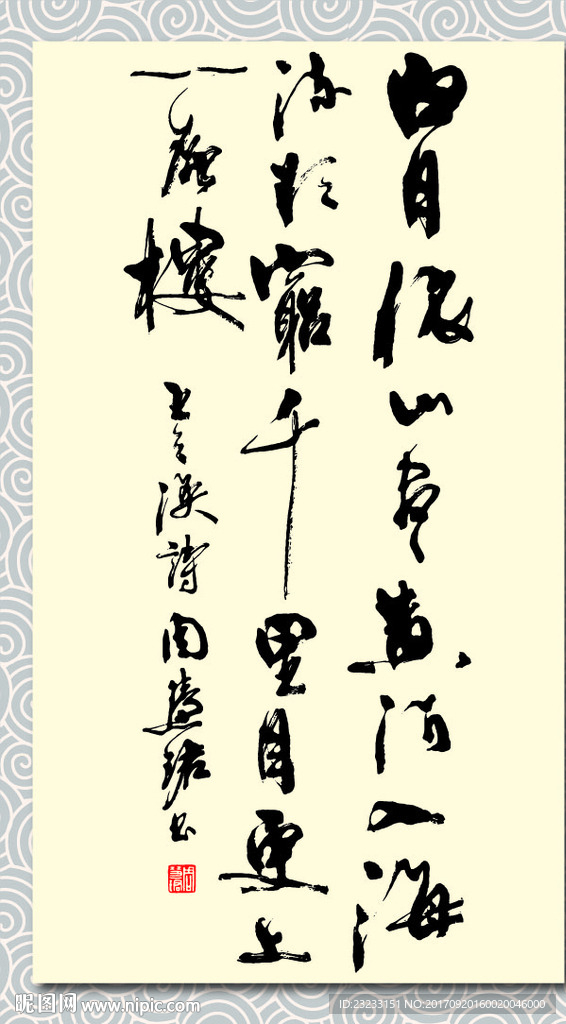 白日依山盡黄河入海
流欲窮千里目更上
一層樓
王之渙詩周慧珺书
昵图网 www.nipic.com
ID:23233151 NO:20170920160020046000